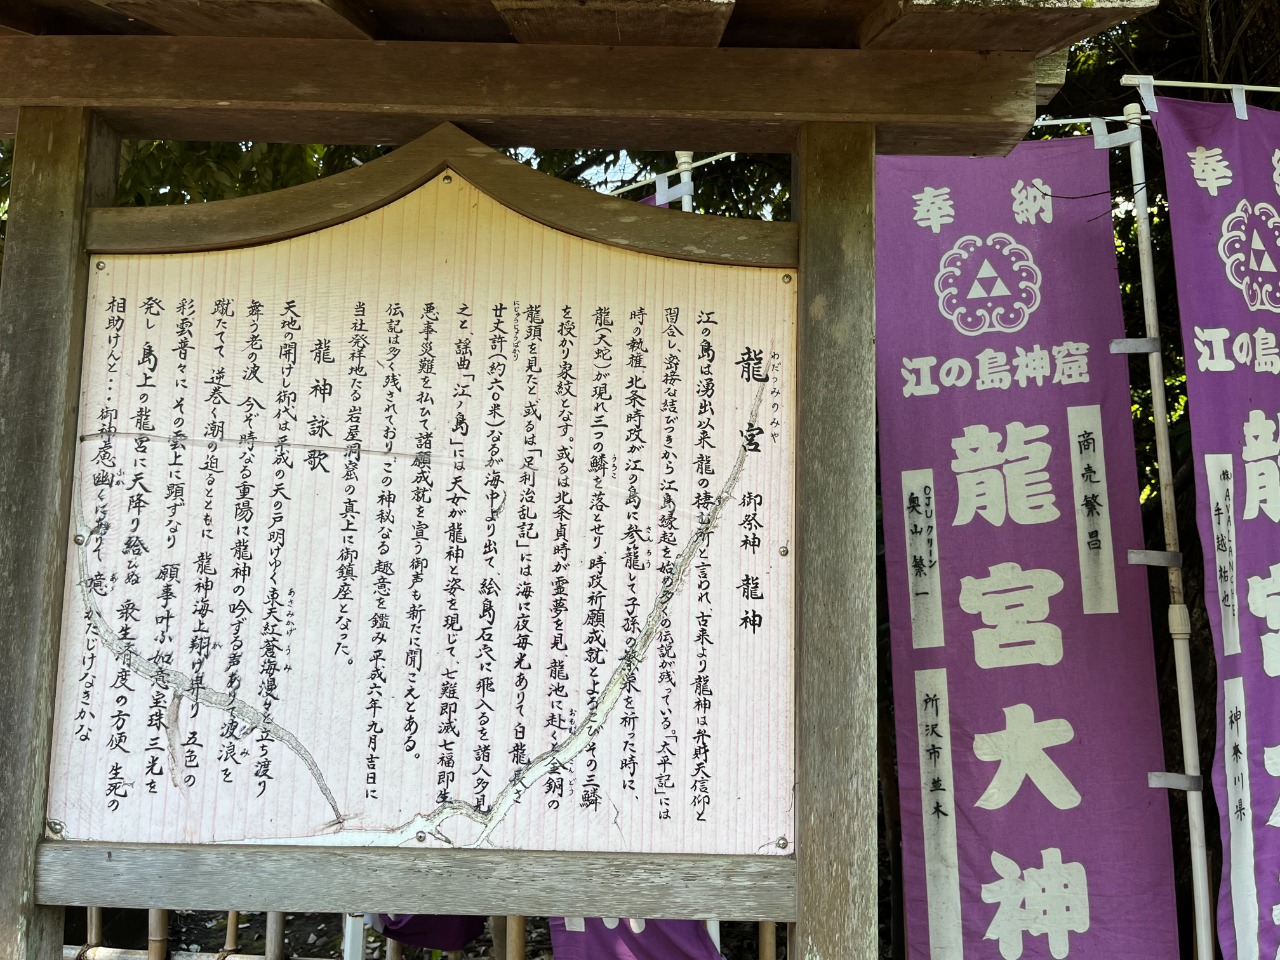 龍宮 御祭神 龍神
わだつみのみや
江の島は湧出以来 龍の棲む所と言われ、古来より龍神は弁財天信仰と
習合し、密接な結びつきから江島縁起を始め多くの伝説が残っている。「太平記」には
時の執権、北条時政が江の島に参籠して子孫の繁栄を祈った時に、
さんろう
龍(大蛇)が現れ三つの鱗を落とせり、時政祈願成就とよろこびその三鱗
うろこ
を授かり家紋となす。或るは北条貞時が霊夢を見、龍池に赴くと金銅の
龍頭を見たと、或るは「足利治乱記」には海に夜毎光ありて白龍長さ
廿丈許(約六〇米)なるが海中より出て、絵島石穴に飛入るを諸人多見
にじゅうじょうばかり
之と、謡曲「江ノ島」には天女が龍神と姿を現じて、七難即滅七福即生
悪事災難を払ひて諸願成就を宣う御声も新たに聞こえとある。
伝記は多く残されており、この神秘なる趣意を鑑み平成六年九月吉日に
当社発祥地たる岩屋洞窟の真上に御鎮座となった。
龍神詠歌
天地の開けし御代は平成の天の戸明けゆく東天紅蒼海漫々と立ち渡り
あさみかげ うみ
舞う老の波 今ぞ時なる重陽に龍神の吟ずる声ありて波浪を
なみ
蹴たてて 逆巻く潮の迫るとともに 龍神海上翔け昇り 五色の
彩雲普々に その雲上に顕ずなり 願事叶ふ如意宝珠 三光を
発し 島上の龍宮に天降り給ひぬ 衆生済度の方便 生死の
相助けんと・・・御神慮幽くにおりて 噫 かたじけなきかな
ふか
あゝ
奉納
江の島神窟
龍宮大神
商売繁昌
OJUクリーン
奥山繁一
所沢市並木
奉
江の島
手越祐也
神奈川県